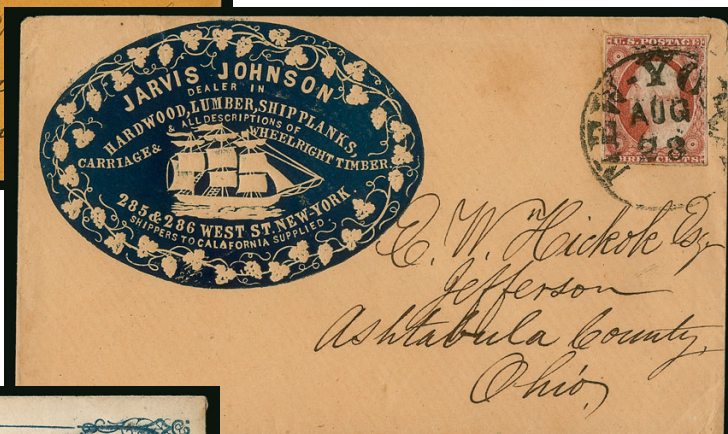 JARVIS JOHNSON
DEALER IN
HARDWOOD, LUMBER, SHIP PLANKS,
& ALL DESCRIPTIONS OF
CARRIAGE & WHEELRIGHT TIMBER.
285 & 286 WEST ST. NEW-YORK.
SHIPPERS TO CALAFORNIA SUPPLIED.
U.S. POSTAGE
THREE CENTS
NEW-YORK
AUG
28
C. W. Hickok Esq
Jefferson
Ashtabula County,
Ohio,